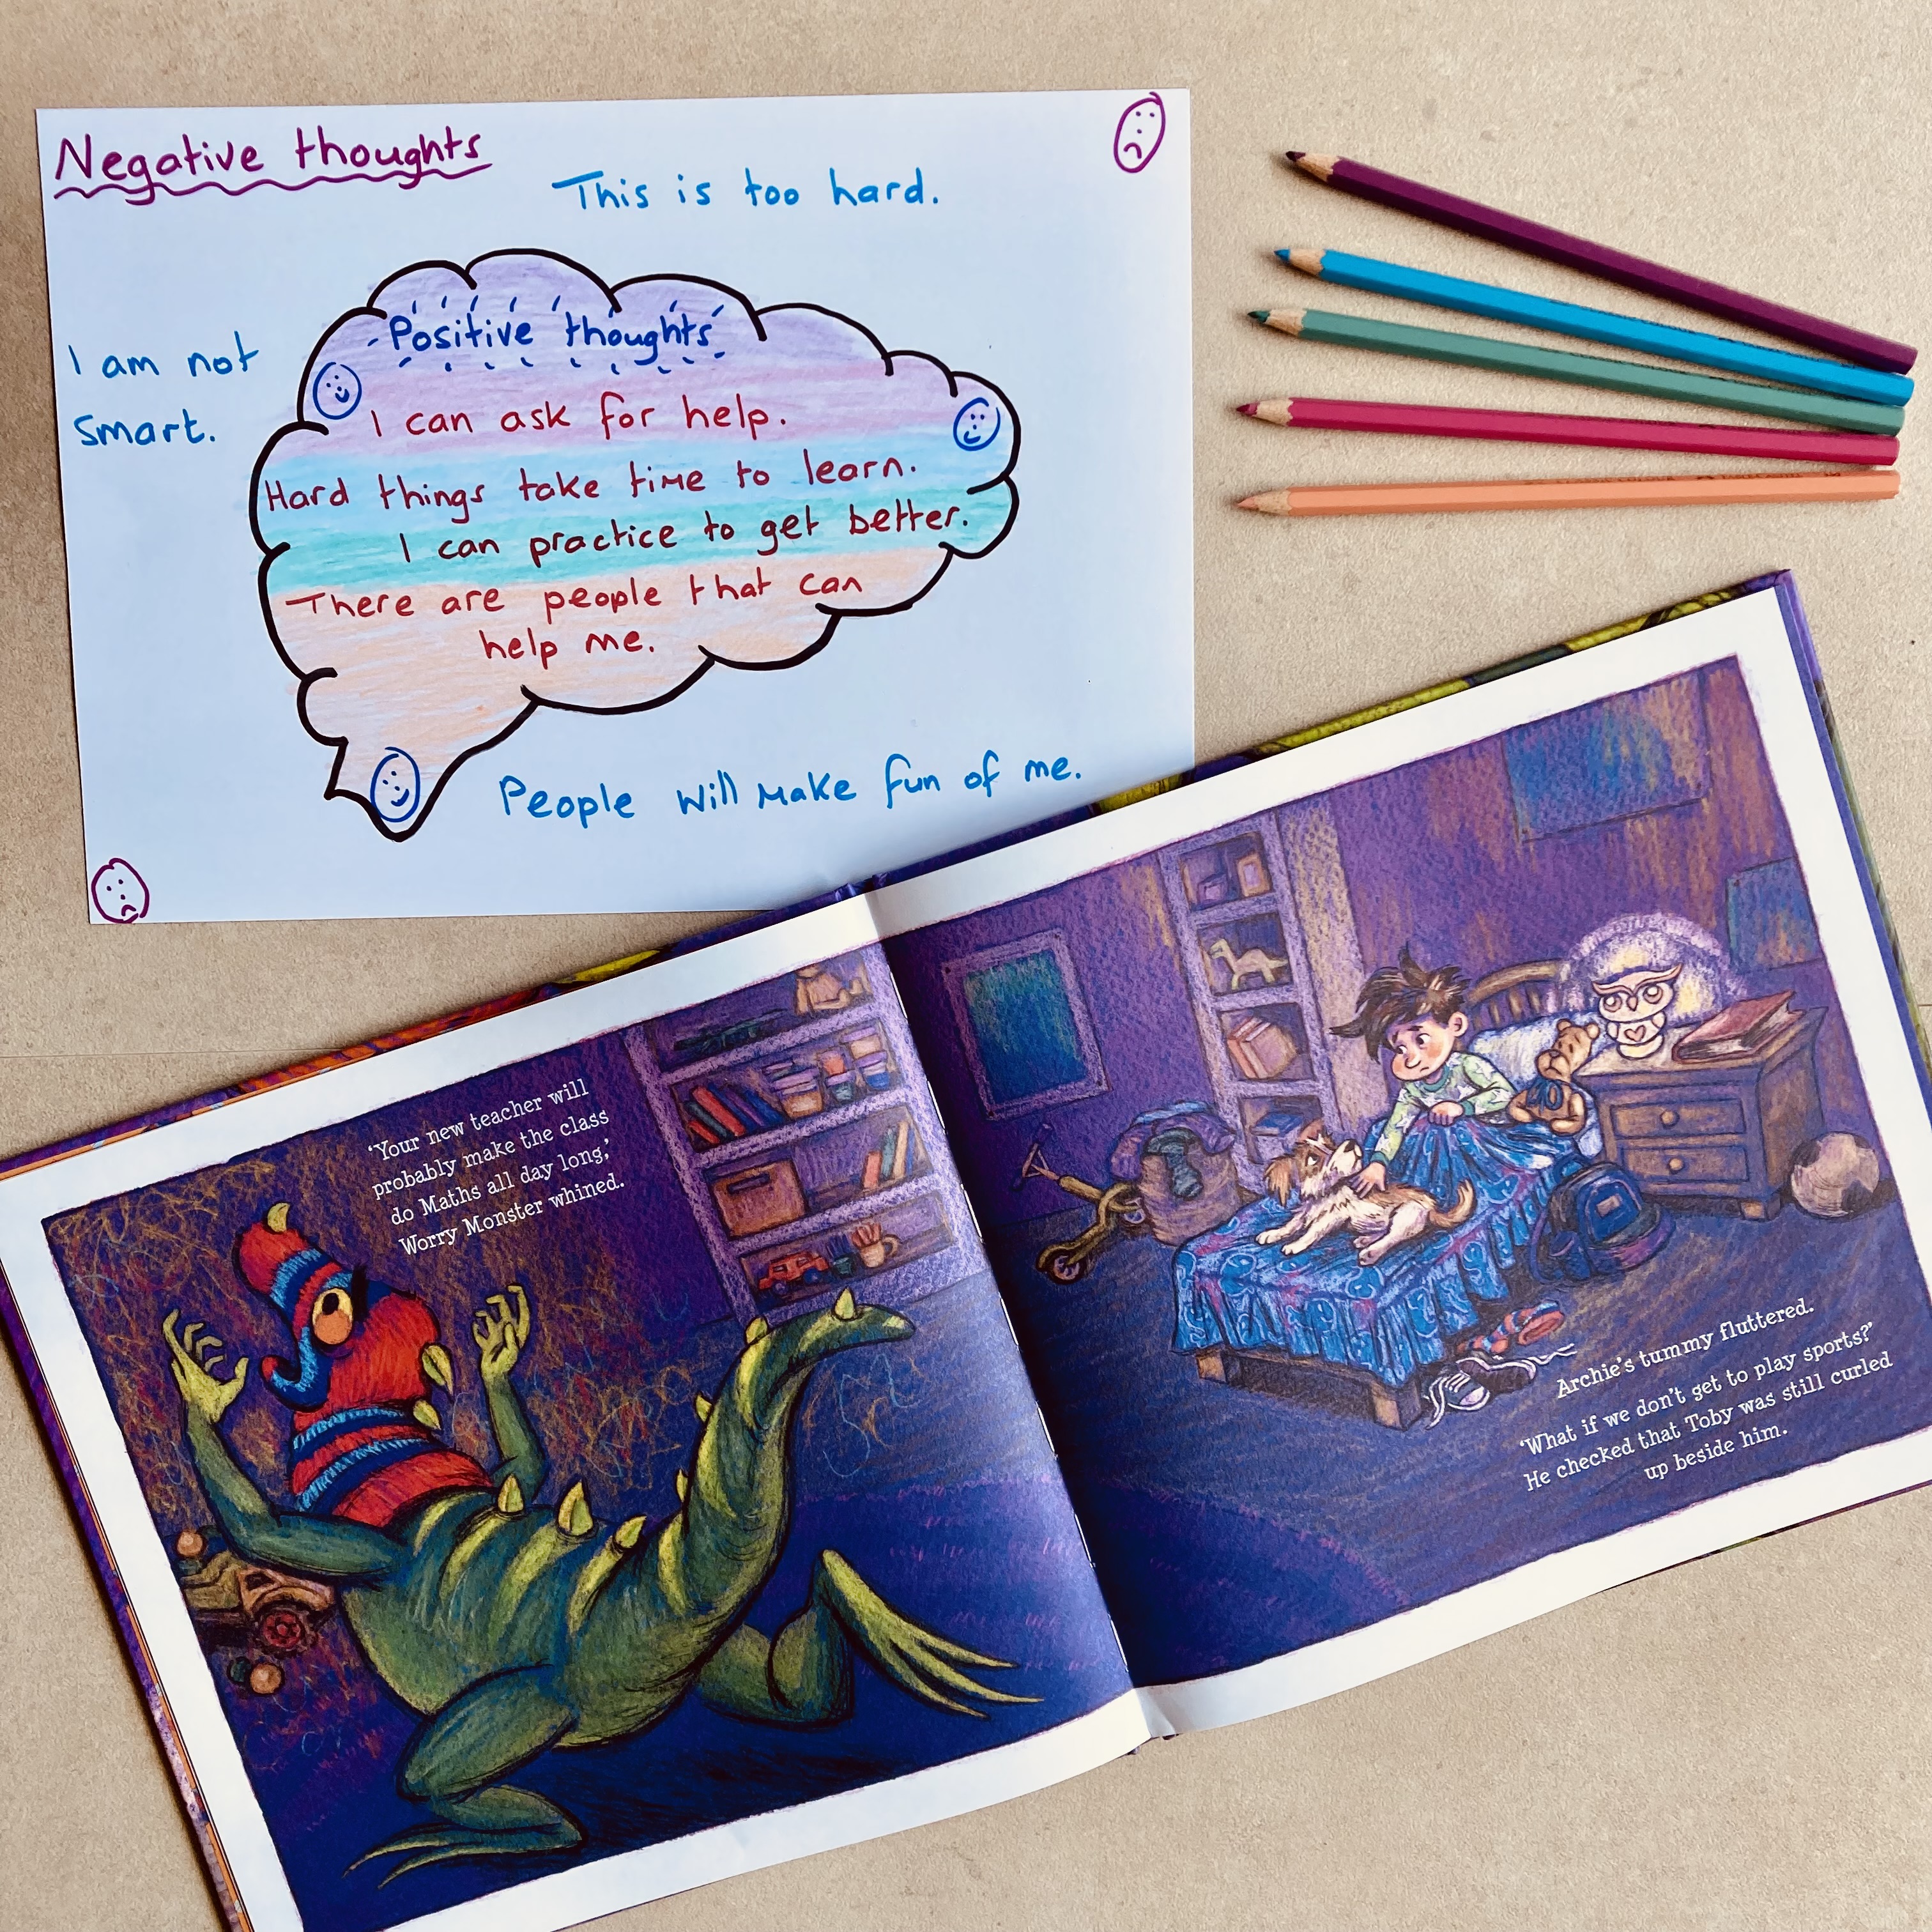 Negative thoughts
This is too hard.
I am not
smart.
Positive thoughts
I can ask for help.
Hard things take time to learn.
I can practice to get better.
There are people that can
help me.
People will make fun of me.
‘Your new teacher will
probably make the class
do Maths all day long,’
Worry Monster whined.
Archie’s tummy fluttered.
‘What if we don’t get to play sports?’
He checked that Toby was still curled
up beside him.